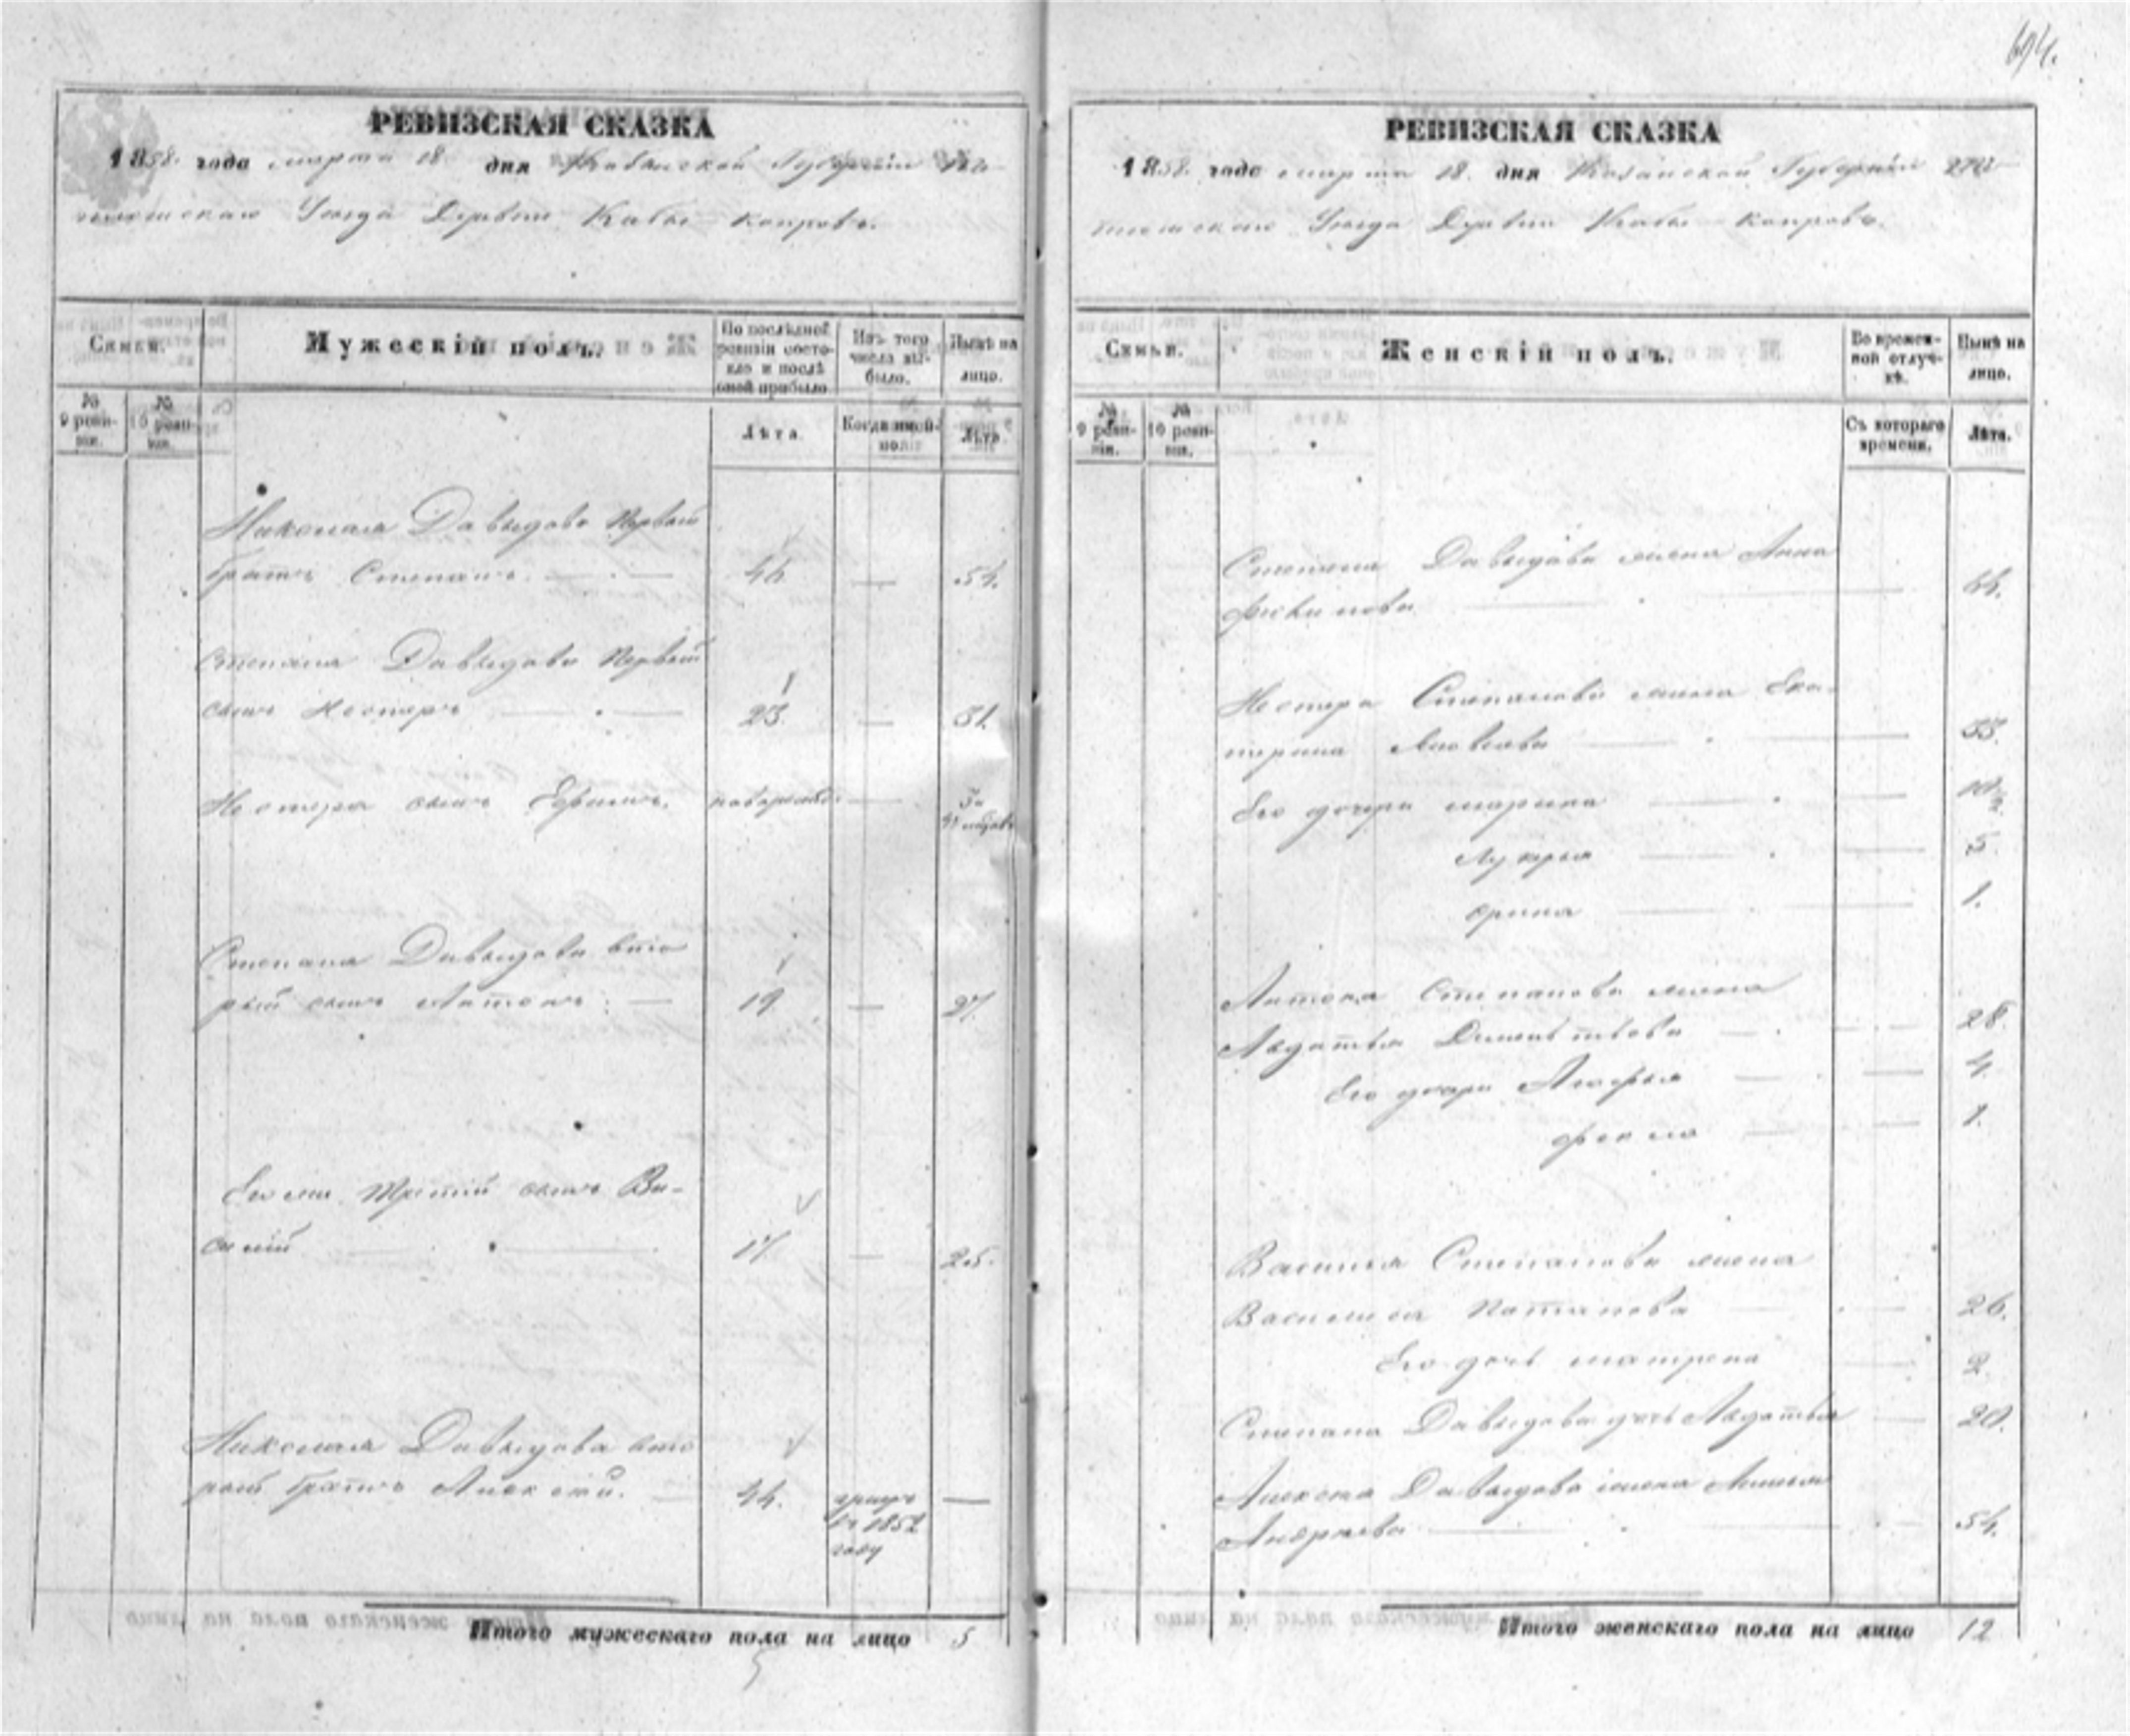 694.
РЕВИЗСКАЯ СКАЗКА
1858. года марта 18 дня Казанской Губернии Чи-
стопольскаго Уезда Деревни Кабы-Копровъ.
Семьи.
Мужескій полъ.
По послѣдней ревизіи состояло и послѣ оной прибыло.
Изъ того числа выбыло.
Нынѣ на лицо.
№ 9 ревизіи.
№ 10 ревизіи.
Лѣта.
Когда именно.
Лѣта.
Николая Давыдова первый
братъ Степанъ 46 54.
Степана Давыдова первый
сынъ Нестеръ 23. 31.
Нестера сынъ Ефимъ. новорожден
Степана Давыдова вто
рый сынъ Антонъ 19 27.
Его же третій сынъ Ва-
силій 17 25.
Николая Давыдова вто
рый братъ Алексей. 44.
въ 1852
году
Итого мужескаго пола на лицо 5
РЕВИЗСКАЯ СКАЗКА
1858. года марта 18. дня Казанской Губерніи
Уезда Деревни Кабы-Копровъ.
Семьи.
Женскій полъ.
Во временной отлучкѣ.
Нынѣ на лицо.
№ 9 ревизіи.
№ 10 ревизіи.
Съ котораго времени.
Лѣта.
Степана Давыдова жена Анна
64.
Нестера Степанова жена Ека-
терина Яковлева 33.
Его дочери Марина
Лукерья 5.
Орина 1.
Антона Степанова жена
Авдотья 28.
Его дочери 4.
Фекла 1.
Василья Степанова жена
Василиса Потапова 26.
Его дочь Матрена 2.
Степана Давыдова дочь Авдотья 20.
Алексея Давыдова жена
Андреева 54.
Итого женскаго пола на лицо 12